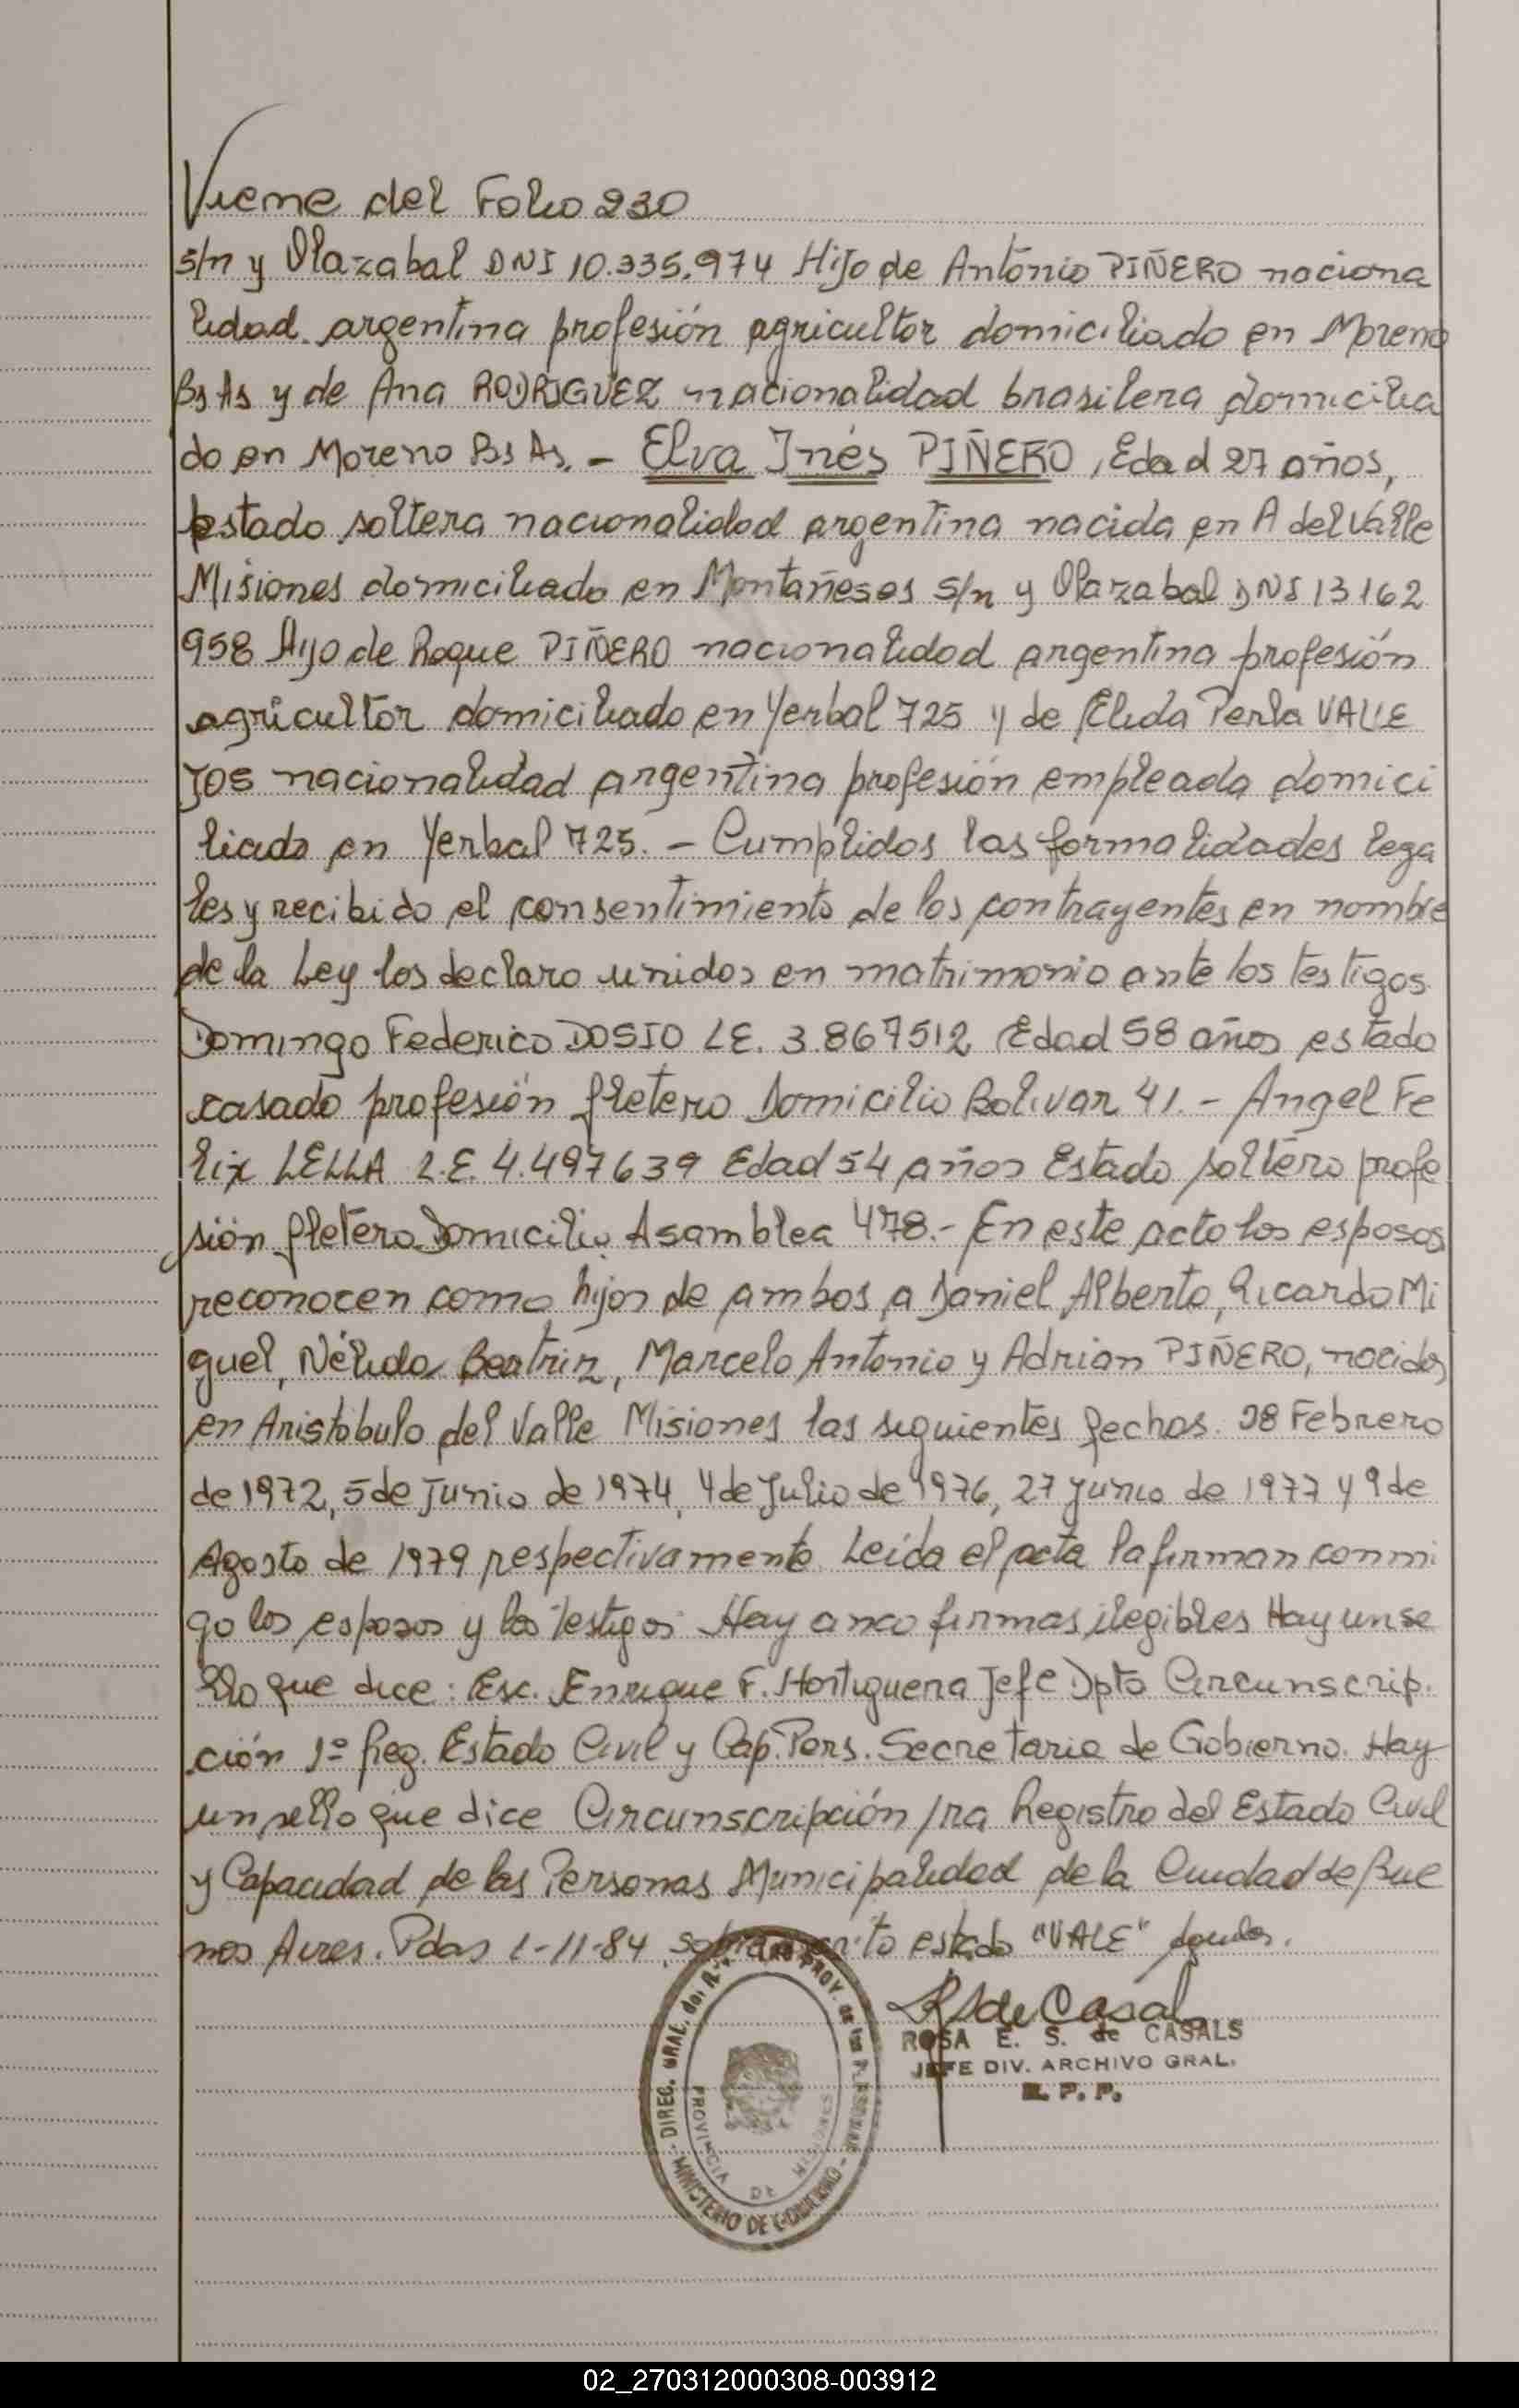 Viene del Folio 230
s/n y Olazabal DNI 10.335.974 Hijo de Antonio PIÑERO naciona
lidad argentina profesión agricultor domiciliado en Moreno
Bs As y de Ana RODRIGUEZ nacionalidad brasilera domicilia
do en Moreno Bs As. - Elva Inés PIÑERO, Edad 27 años,
Estado soltera nacionalidad argentina nacida en A del Valle
Misiones domiciliado en Montañeses s/n y Olazabal DNI 13 162
958 Hijo de Roque PIÑERO nacionalidad argentina profesión
agricultor domiciliado en Yerbal 725 y de Elida Perla VALLE
JOS nacionalidad argentina profesión empleada domici
liado en Yerbal 725. - Cumplidos las formalidades lega
les y recibido el consentimiento de los contrayentes en nombre
de la Ley los declaro unidos en matrimonio ante los testigos
Domingo Federico DOSIO LE. 3.867512 Edad 58 años estado
casado profesión fletero Domicilio Bolivar 41. - Angel Fe
lix LELLA L.E. 4.497639 Edad 54 años Estado soltero profe
sión fletero Domicilio Asamblea 478.- En este acto los esposos
reconocen como hijos de ambos a Daniel Alberto, Ricardo Mi
guel, Nélida Beatriz, Marcelo Antonio y Adrian PIÑERO, nacidos
en Aristóbulo del Valle Misiones las siguientes fechas. 28 Febrero
de 1972, 5 de Junio de 1974, 4 de Julio de 1976, 27 Junio de 1977 y 9 de
Agosto de 1979 respectivamente. Leída el acta la firman conmi
go los esposos y los testigos Hay cinco firmas ilegibles Hay un se
llo que dice: Esc. Enrique F. Hortiguera Jefe Dpto Circunscrip.
ción 1º Reg. Estado Civil y Cap. Pers. Secretaria de Gobierno. Hay
un sello que dice Circunscripción 1ra Registro del Estado Civil
y Capacidad de las Personas Municipalidad de la Ciudad de Bue
nos Aires. Pdas 1-11-84, estado "VALE"
RS de Casals
ROSA E. S. de CASALS
JEFE DIV. ARCHIVO GRAL.
R. P. P.
DIREC. GRAL. del PROV. de las PERSONAS
MINISTERIO DE GOBIERNO
PROVINCIA DE MISIONES
02_270312000308-003912